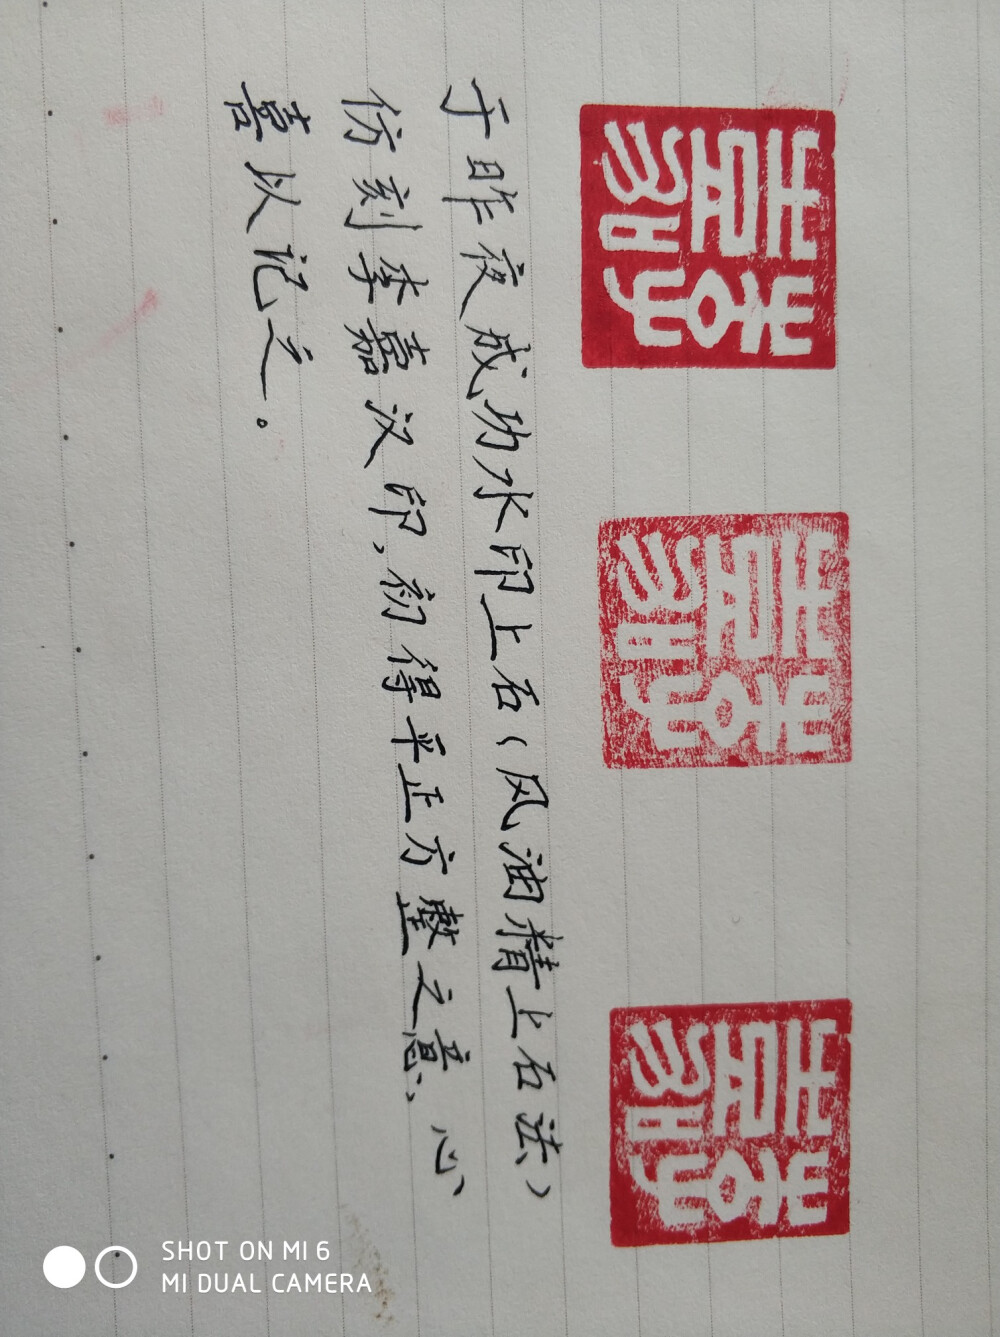 于昨夜成功水印上石(风油精上石法)
仿刻李嘉汉印,初得平正方整之意、心
喜以记之。
SHOT ON MI 6
MI DUAL CAMERA